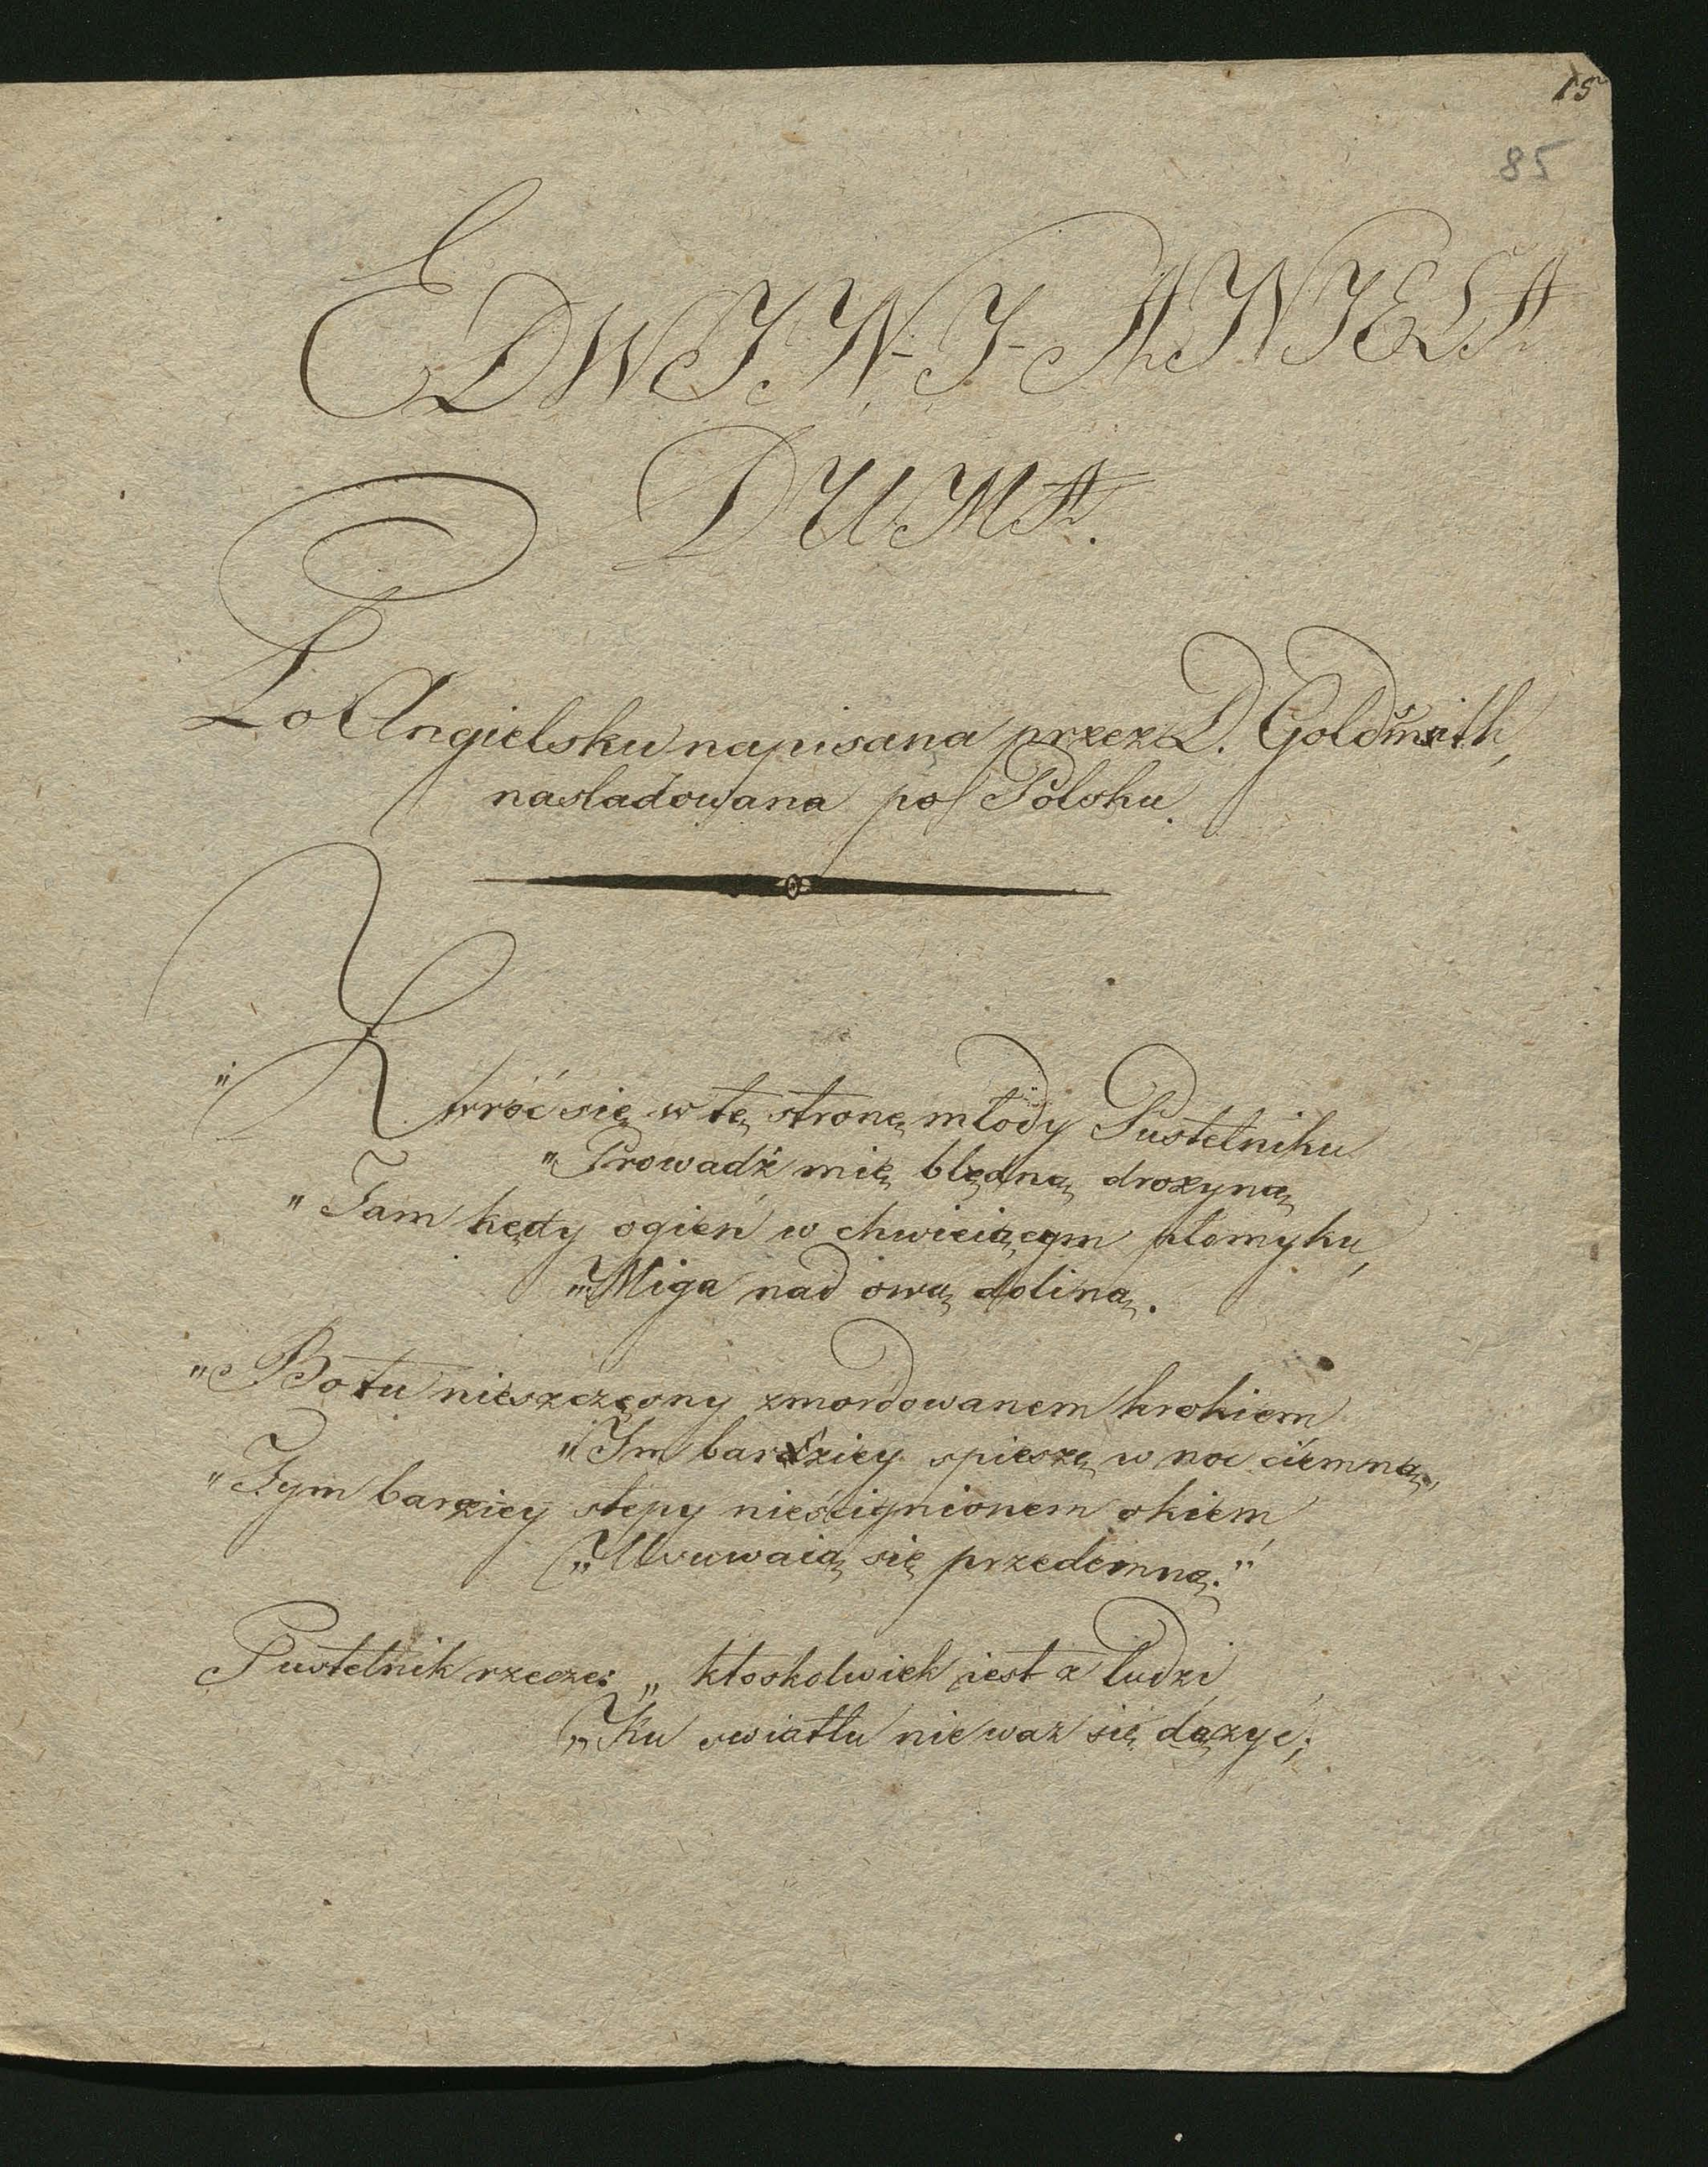 15
85
EDWIN I ANIELA
DUMA.
Po Angielsku napisana przez D. Goldsmith,
nasladowana po Polsku.
"Zwróć się w tę stronę młody Pustelniku
"Prowadź mię błędną drozyną
"Tam kędy ogień w chwieiącym płomyku,
"Miga nad ową doliną.
"Bo tu nieszczęsny zmordowanem krokiem
"Im bardziey spieszę w noc ciemną,
"Tym barziey stepy nieścignionem okiem
"Usuwaią się przedemną."
Pustelnik rzecze: „ ktoskolwiek iest z ludzi
„Ku swiatłu nie waz się dązyc;